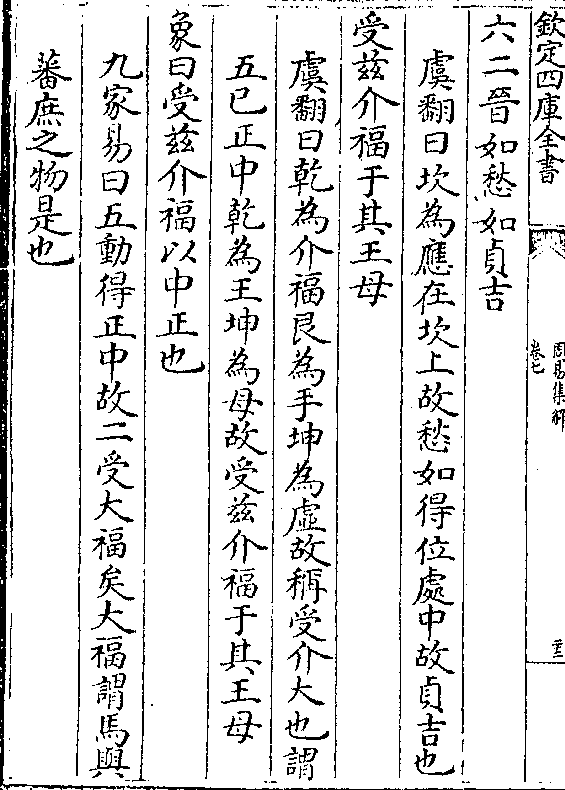 欽定四庫全書
周易集解
卷七
六二晉如愁如貞吉
虞翻曰坎為應在坎上故愁如得位處中故貞吉也
受兹介福于其王母
虞翻曰乾為介福艮為手坤為虛故稱受介大也謂
五已正中乾為王坤為母故受兹介福于其王母
象曰受兹介福以中正也
九家易曰五動得正中故二受大福矣大福謂馬與
蕃庶之物是也